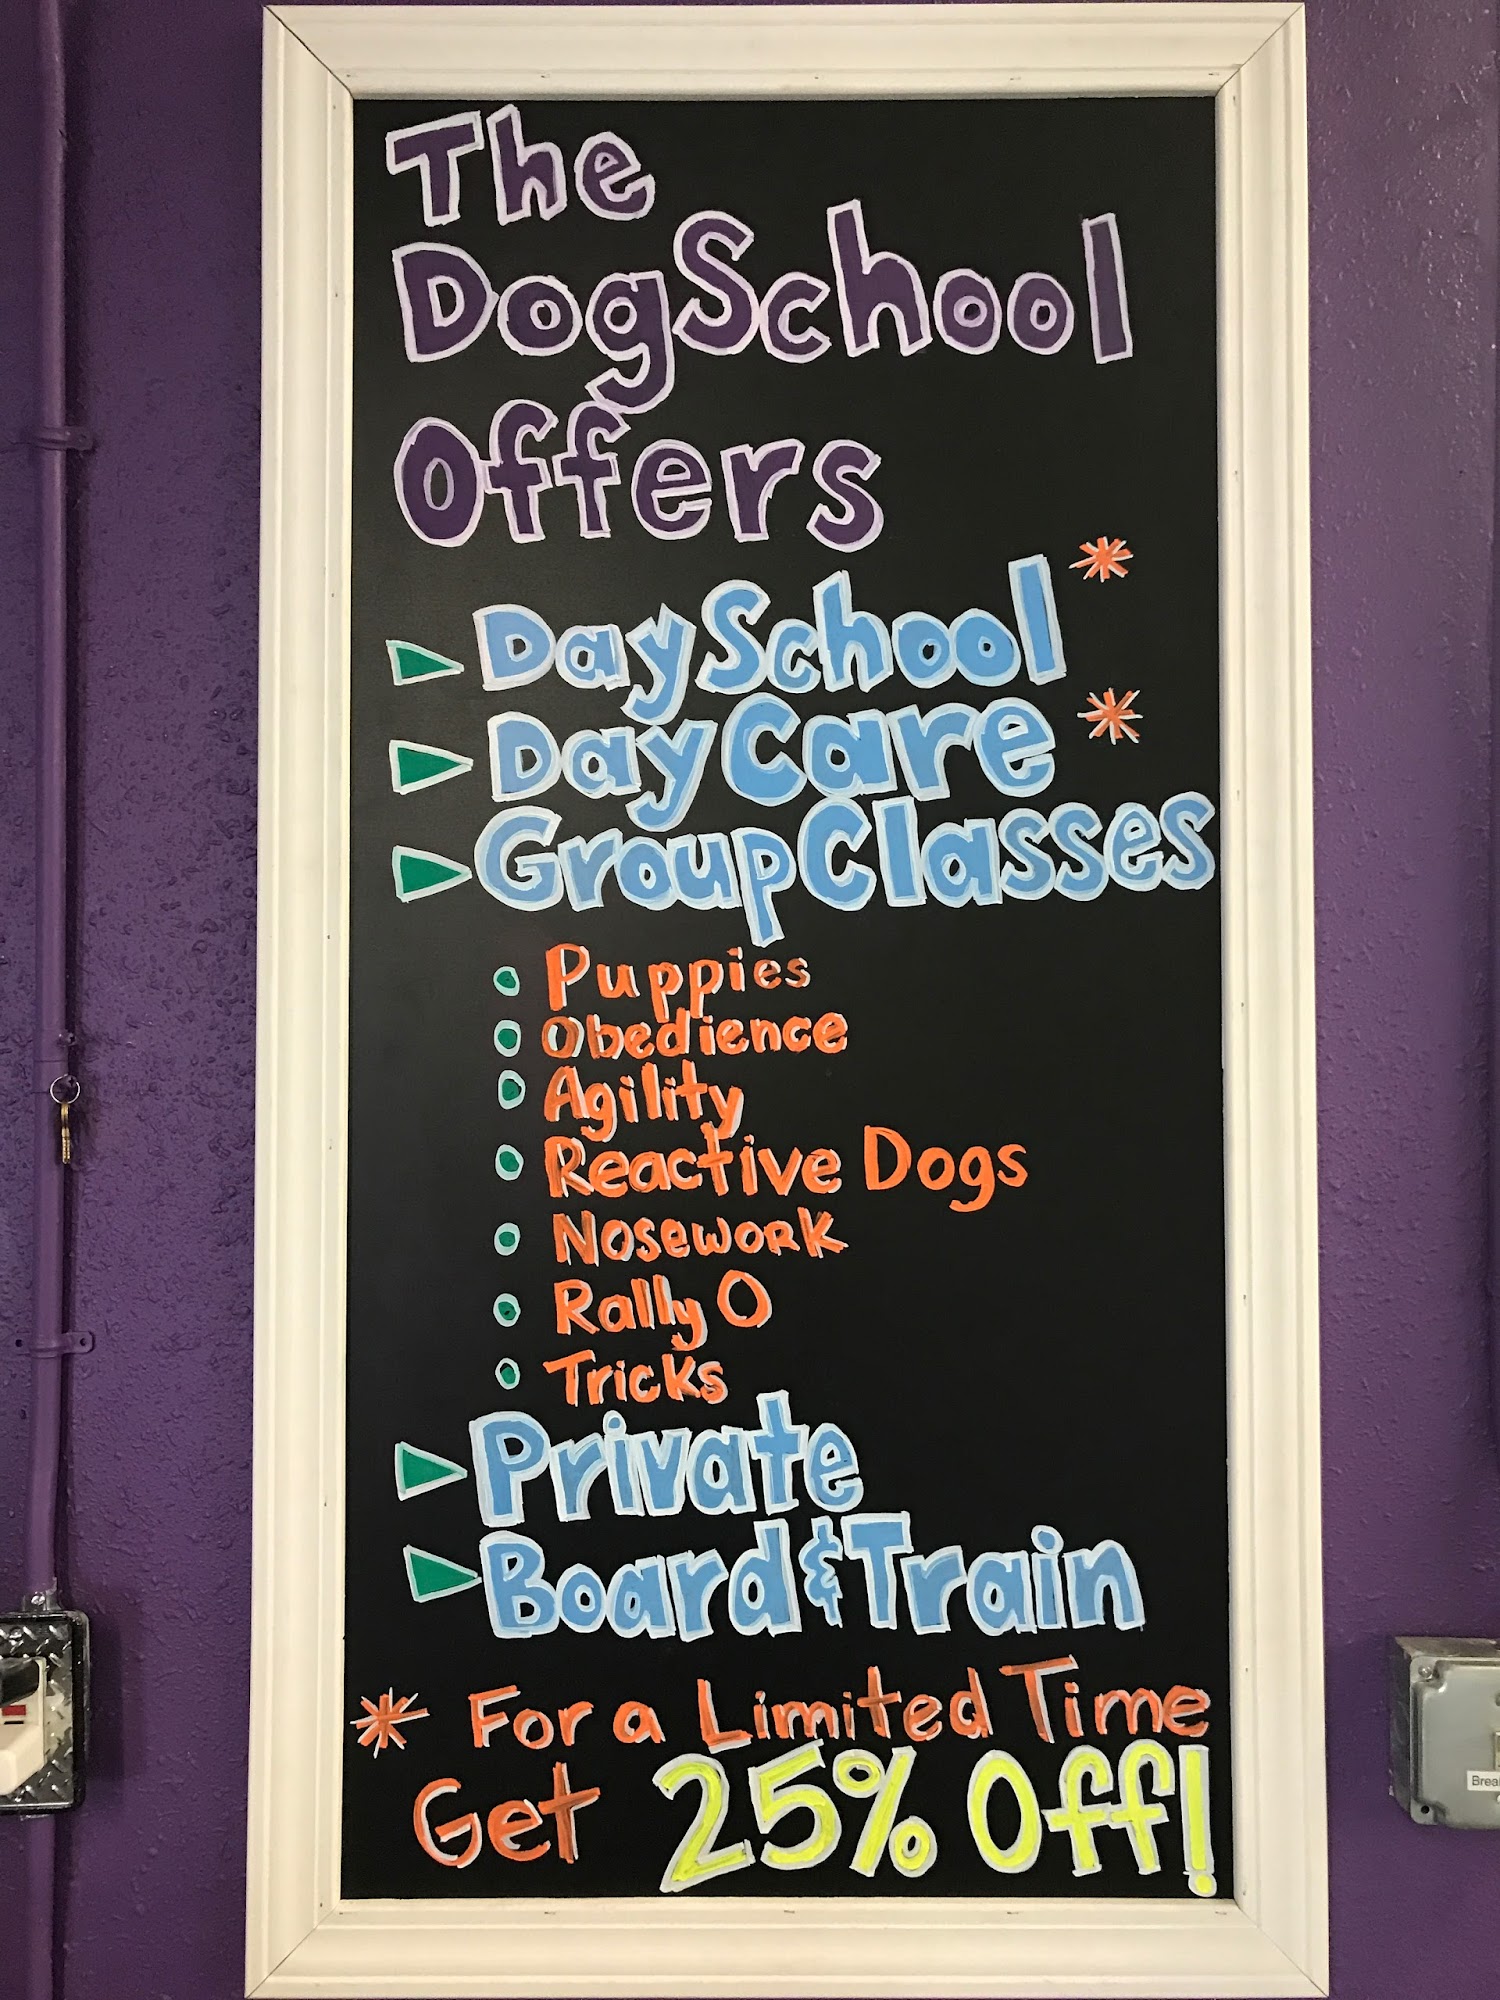 The
DogSchool
Offers
Day School *
Day Care *
Group Classes
Puppies
Obedience
Agility
Reactive Dogs
Nosework
Rally O
Tricks
Private
Board & Train
* For a Limited Time
Get 25% Off!